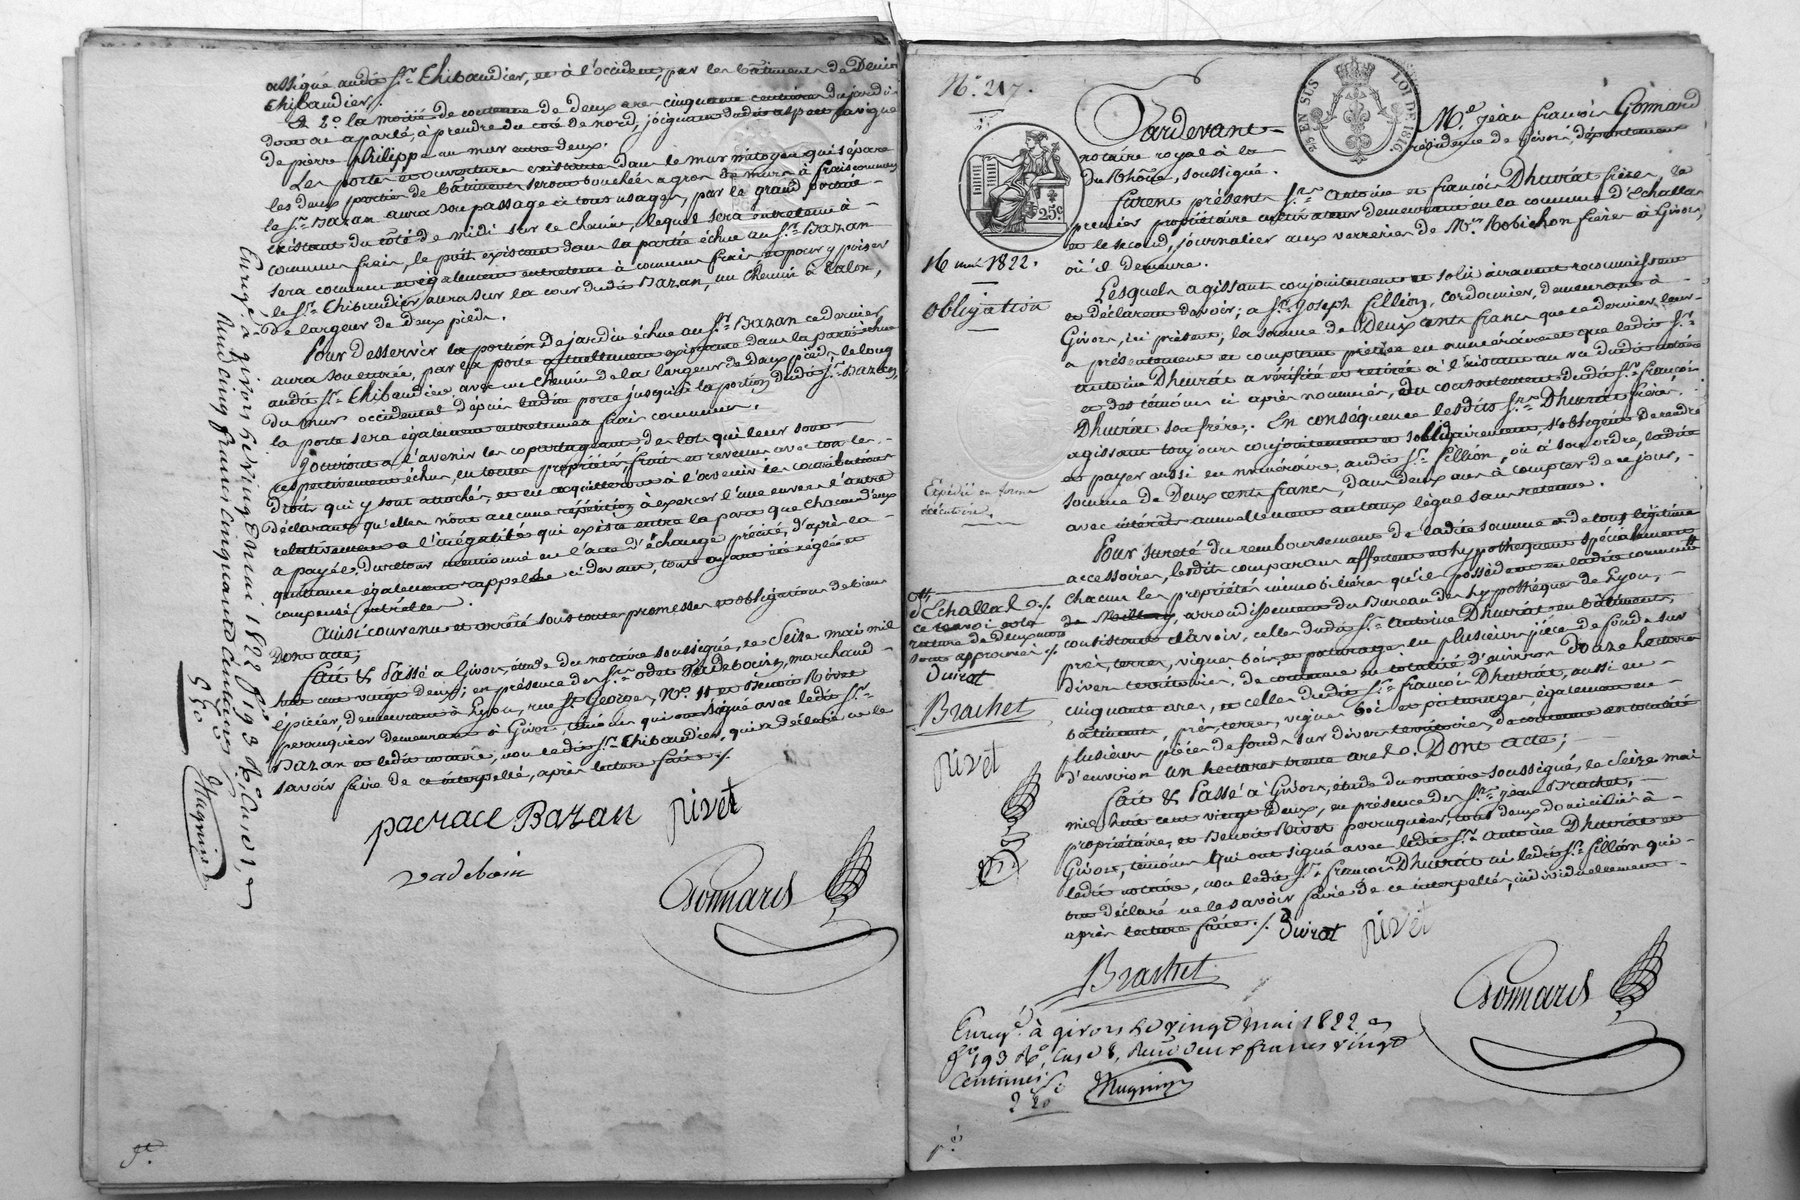 assigné audit Sr. Thibaudier, et à l'occident, par les bâtiments de Denis
Thibaudier;
& 2° la moitié de contenue de deux ares cinquante centiares du jardin
dont on a parlé, à prendre du coté de nord, joignant dudit aspect la vigne
de pierre Philippe un mur entre deux.
Les portes et ouvertures existante dans le mur mitoyen qui sépare
les deux portion de bâtiment seront bouchées a gros de murs à frais communs
le Sr. Bazan aura son passage à tous usages, par le grand portail
existant du côté de midi sur le chemin, lequel sera entretenu à
communs frais, le puit existant dans la partie échue au Sr. Bazan
sera commun et également entretenu à communs frais et pour y puiser
le Sr. Thibaudier aura sur la cour dudit Bazan, un chemin à talon,
de largeur de deux pieds.
Pour desservir la portion de jardin échue au Sr. Bazan ce dernier
aura son entrée, par la porte actuellement existante dans la partie échue
audit Sr. Thibaudier avec un chemin de la largeur de deux pieds le long
du mur occidental depuis ladite porte jusqu'à la portion dudit Sr. Bazan,
la porte sera également entretenue à frais communs.
Jouiront à l'avenir les copartageant des lots qui leur sont
respectivement échus, en toutes propriétés, fruits et revenus avec tous les
droits qui y sont attachés, et en acquitteront à l'avenir les contributions
déclarant qu'elles n'ont aucune répétition à exercer l'une envers l'autre
relativement a l'inégalité qui existe entre la part que chacun d'eux
a payée, du retour mentionné en l'acte d'échange précité, d'après la
quittance également rappelée ci devant, tout ayant été réglé et
compensé entr'elles.
Ainsi convenu et arrêté sous toutes promesses et obligations de biens
Dont acte;
Fait & Passé a Givors, étude du notaire soussigné, le Seize mai mil
huit cent vingt deux; en présence des Srs. odet Vadeboin, marchand
épicier, demeurant à Lyon, rue St George, No. 11 et Benoit Rivet
perruquier demeurant à Givors, témoins qui ont signé avec ledit Sr.
Bazan et ledit notaire, non ledit Sr. Thibaudier, qui a déclaré ne le
savoir faire de ce interpellé, après lecture faite ./.
pacrace Bazan rivet
vadeboin
Gonnard
Enregé. à givors le vingt mai 1822 fo. 193 Ro. Case 1, et
Reçu cinq francs cinquante centimes
5 50 Magnin
No. 217.
25 EN SUS LOI DE 1816.
25c
Pardevant Me. Jean François Gonnard
notaire royal à la résidence de Givors, département
du Rhône, soussigné.
Furent présent Srs. Antoine et François Dhuirat frères, le
premier propriétaire cultivateur demeurant en la commune d'Echallas
et le second, journalier aux verreries de Mrs. Robichon frères à Givors,
où il demeure.
16 mai 1822.
obligation
Lesquels agissant conjointement et solidairement reconnaissent
et déclarent devoir; a Sr. Joseph Fillion, cordonnier, demeurant à
Givors, ici présent; la somme de Deux cents francs que ce dernier leur
a présentement et comptant prêtée en numéraire et que ledit Sr.
antoine Dhuirat a vérifiée et retirée à l'instant au vu dudit notaire
et des témoins ci après nommés, du consentement dudit Sr. françois
Dhuirat son frère. En conséquence lesdits Srs. Dhuirat frères.
agissant toujours conjointement et solidairement, s'obligent de rendre
et payer aussi en numéraire, audit Sr. Fillion, où à son ordre, ladite
somme de Deux cents francs, dans deux ans à compter de ce jour,
avec intérêts annuellement au taux légal sans retenue.
Expédié en forme
exécutoire.
Pour sureté du remboursement de ladite somme et de tous légitimes
accessoires, lesdits comparans affectent et hypothèquent spécialement
chacun les propriétés immobilières qu'ils possèdent en ladite commune
arrondissement du Bureau des hypothèques de Lyon,
consistant, savoir, celles dudit Sr. Antoine Dhuirat en bâtiments,
près, terres, vignes, bois, et paturages en plusieurs pièces de fonds sur
divers territoires, de contenue en totalité d'environ Douze hectares
cinquante ares, et celles dudit Sr. françois Dhuirat, aussi en
bâtiments, près, terres, vignes, bois et paturages, également en
plusieurs pièces de fonds sur divers territoires, de contenue en totalité
d'environ un hectares trente ares. Dont acte;
d'Echallas ./.
ce renvoi et la
rature de deux mots
sont approuvés ./.
Duirat
Brachet
rivet
Fait & Passé à Givors, étude du notaire soussigné, le Seize mai
mil huit cent vingt Deux, en présence des Srs. Jean Brachet,
propriétaire, et Benoit Rivet perruquier, tous deux domiciliés à
Givors, témoins qui ont signé avec ledit Sr. Antoine Dhuirat et
ledit notaire, non ledit Sr. françois Dhuirat ni ledit Sr. Fillion qui
ont déclaré ne le savoir faire de ce interpellés, individuellement
après lecture faite ./. Duirat rivet
Brachet
Gonnard
Enregé. à givors le vingt mai 1822
fo. 193 Ro. Case 8, Reçu deux francs vingt
Centimes
2 20 Magnin